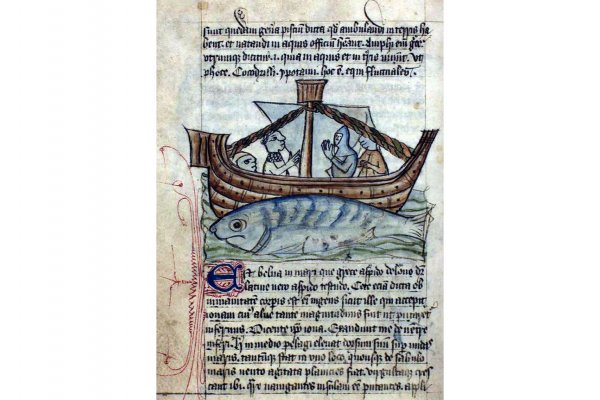 sunt quedam gen̅a pisciū dicta qđ ambulandi in terris ha
bent. et natandi in aquis officiū hēant. Amphi em̅ gre
utrumque dicitur .i. quia in aquis et in t̅ris uiuūt. ut
phoce. Cocodrilli. ypotami. hoc ē. equi fluctuales.
Est belua in mari que grece aspido delone dr̅
latine uero aspido testudo. Cete eciā dicta ob
inmanitatem corpis est em̅ ingens sicut ille qui accepit
ionam cuiꝰ alue tante magnitudinis fuit ut putaret
infernus. Dicente ip̅o iona. Exaudiuit me de uentre
inferi. in medio pelagi eleuat dorsum suū sup undas
maris. stat in uno loco quousque de sabulo
maris uento agitata planicies fiat. uirgulta cres
cant ibi. nauigantes insulam eē putantes. appli